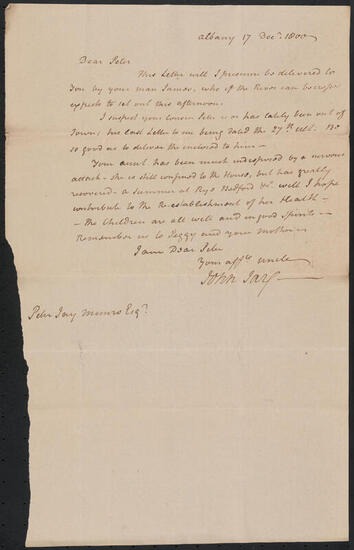 Albany 17 Decr. 1800
Dear Peter
This Letter will I presume be delivered to
You by your man James, who if the River can be crossed
expects to set out this afternoon.
I suspect your cousin Peter is or has lately been out of
Town; his last Letter to me being dated the 27th ult. Be
so good as to deliver the enclosed to him—
Your aunt has been much indisposed by a nervous
attack— she is still confined to the House, but has greatly
recovered— a summer at Rye Bedford &c. will I hope
contribute to the Re-establishment of her Health—
— The children are all well and in good spirits—
Remember us to Peggy and your mother—
I am Dear Peter
Your affte. uncle
John Jay—
Peter Jay Munro Esqr.